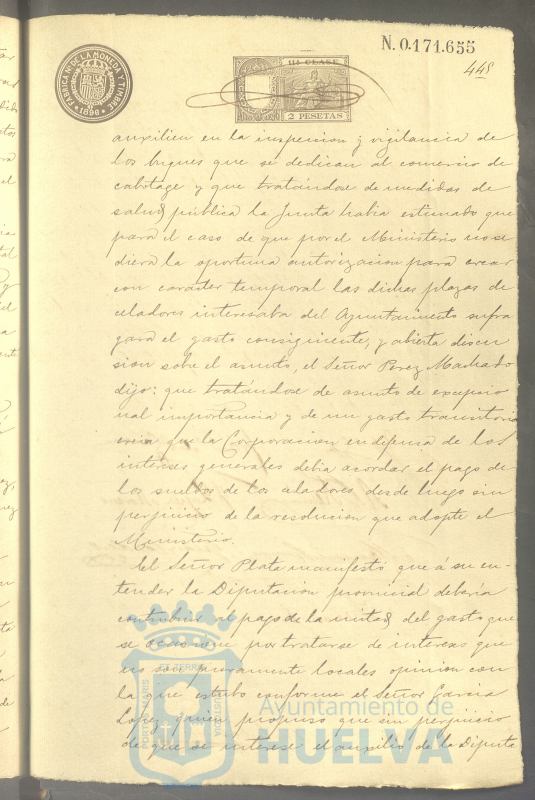 N. 0.171.655
448
FABRICA NL DE LA MONEDA Y TIMBRE
1896
11ª CLASE
2 PESETAS
auxilien en la inspeccion y vigilancia de
los buques que se dedican al comercio de
cabotage y que tratándose de medidas de
salud pública la Junta habia estimado que
para el caso de que por el Ministerio no se
diera la oportuna autorizacion para crear
con caracter temporal las dichas plazas de
celadores interesaba del Ayuntamiento sufra
gara el gasto consiguiente, y abierta discu
sion sobre el asunto, el Señor Perez Machado
dijo: que tratándose de asunto de excepcio
nal importancia y de un gasto transitorio
creia que la Corporacion en defensa de los
intereses generales debia acordar el pago de
los sueldos de los celadores desde luego sin
perjuicio de la resolucion que adopte el
Ministerio.
El Señor Plata manifestó que á su en-
tender la Diputacion provincial deberia
contribuir al pago de la mitad del gasto que
se ocasione por tratarse de intereses que
no son puramente locales opinion con
la que estubo conforme el Señor Garcia
Lopez quien propuso que sin perjuicio
de que se interese el auxilio de la Diputa
Ayuntamiento de
HUELVA